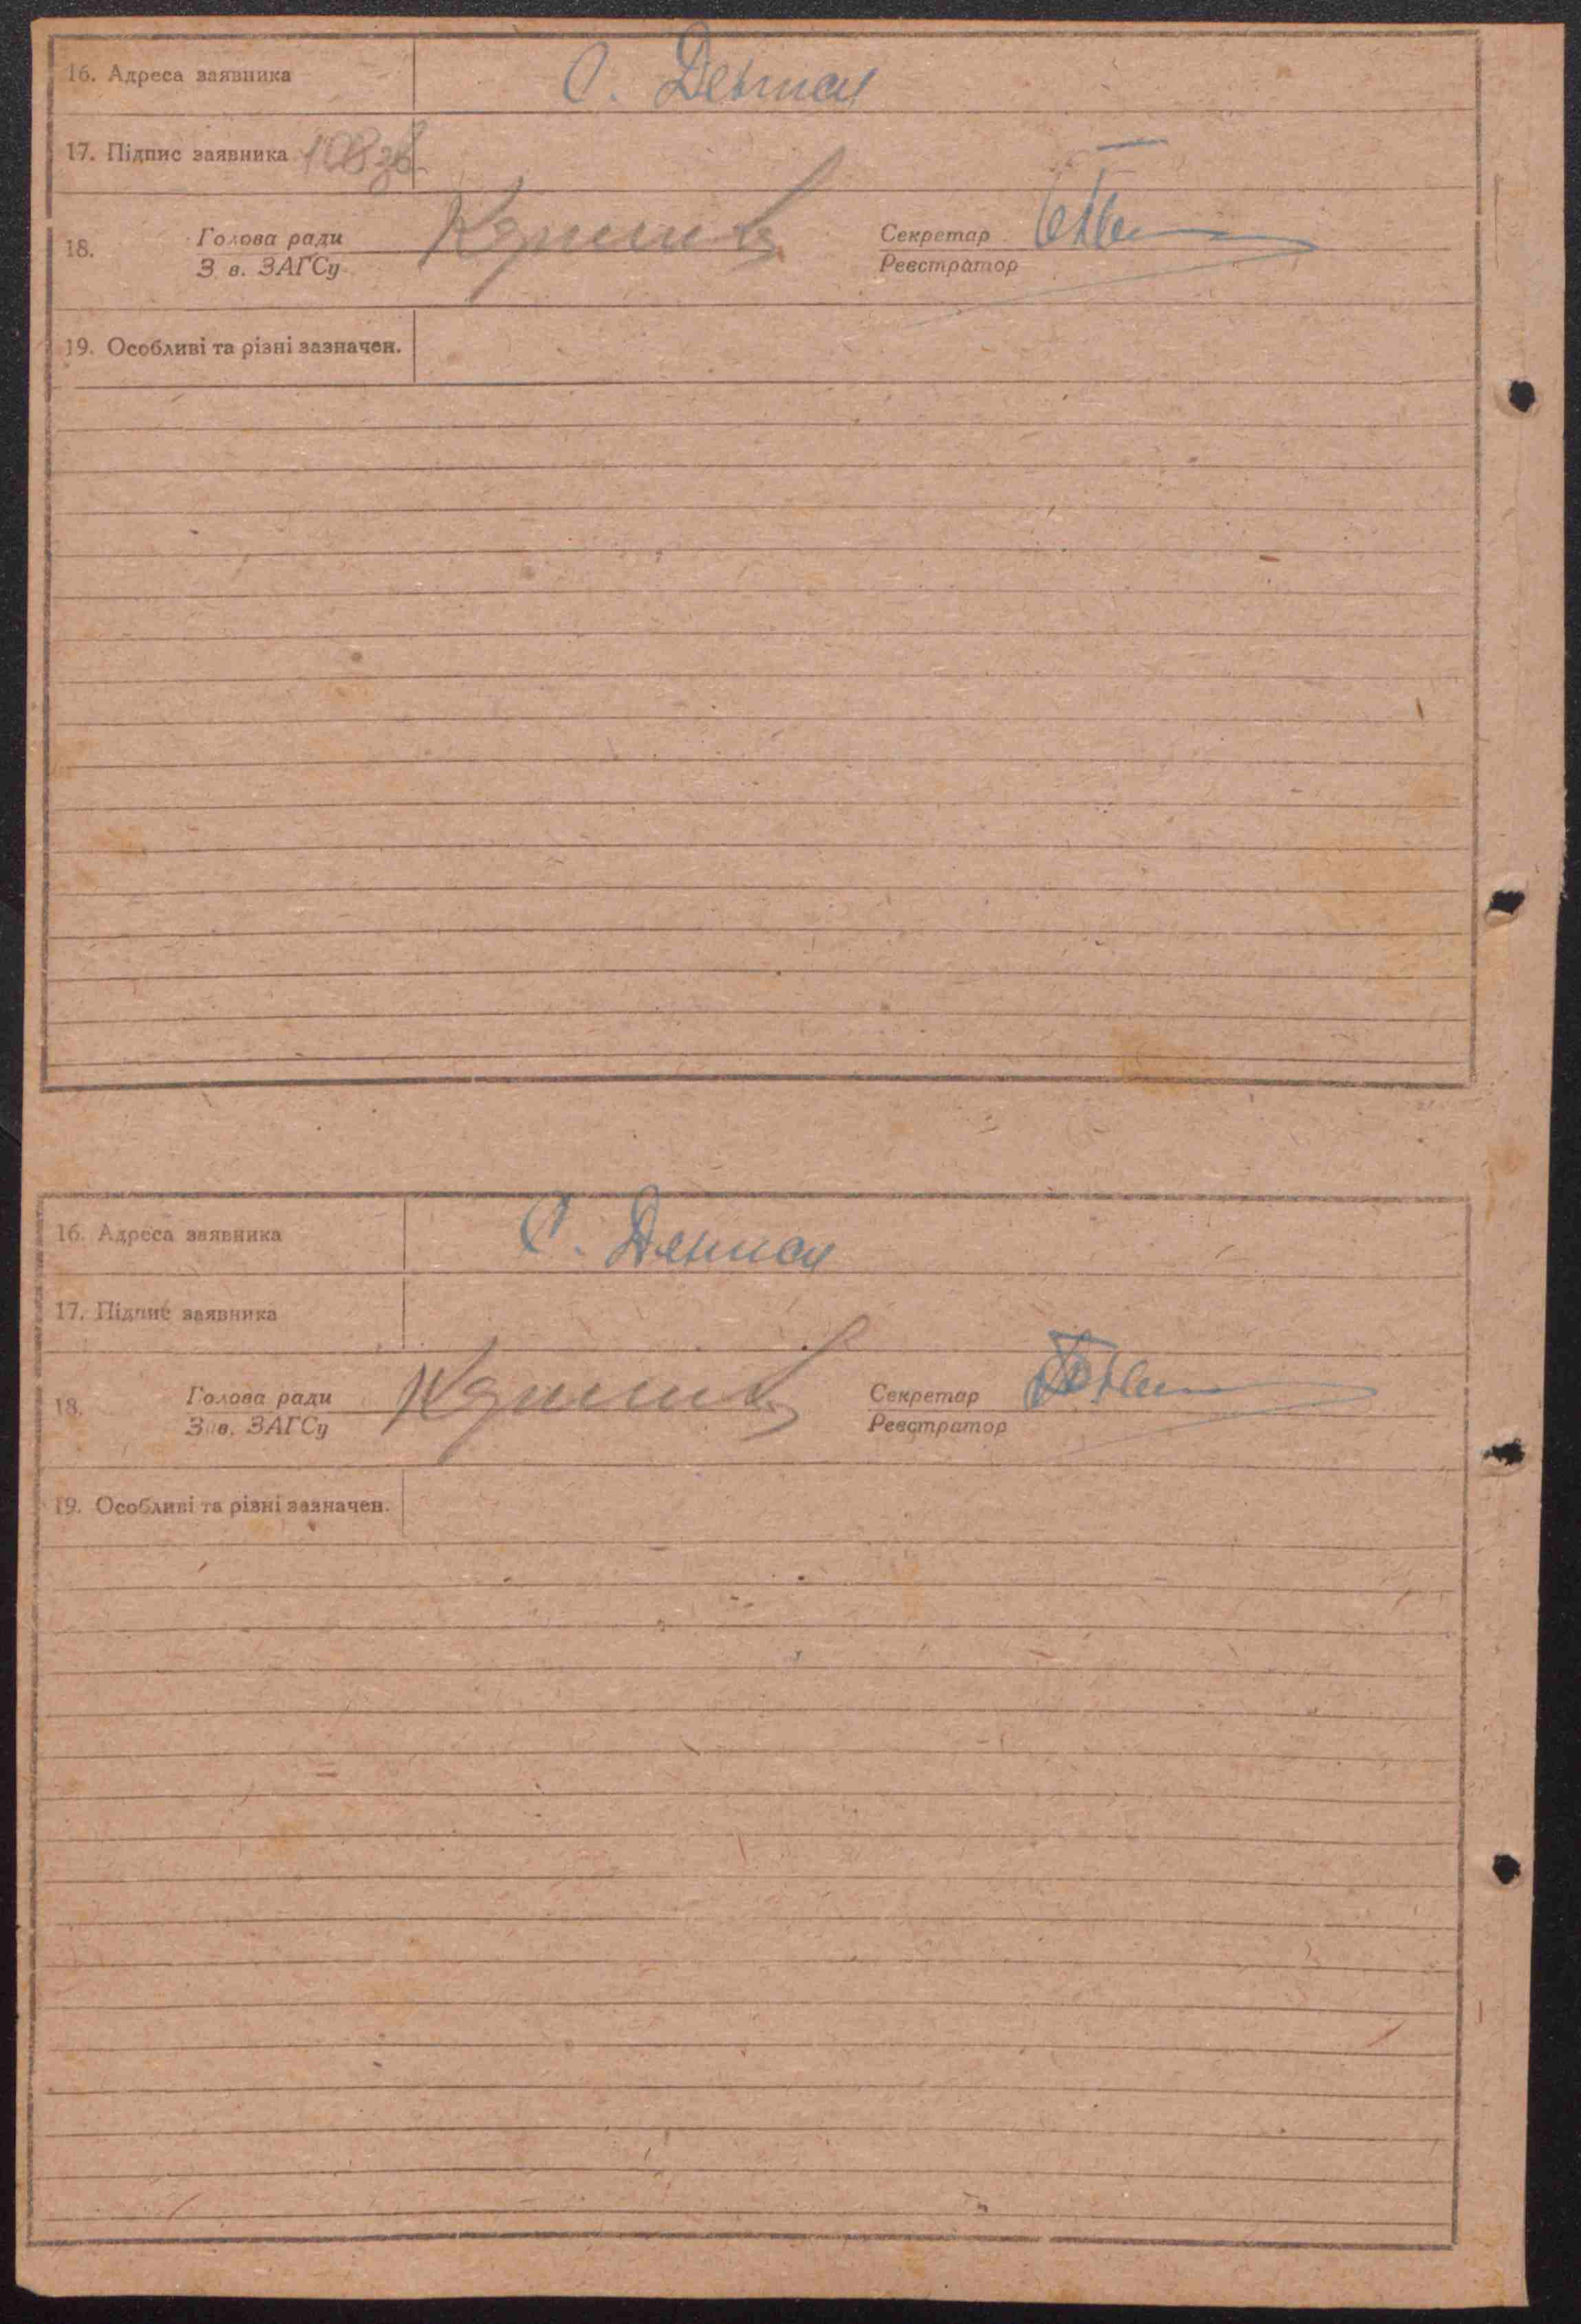 16. Адреса заявника С. Дениси
17. Підпис заявника
18. Голова ради Секретар
З в. ЗАГСу Реєстратор
19. Особливі та різні зазначен.
16. Адреса заявника С. Дениси
17. Підпис заявника
18. Голова ради Секретар
Зав. ЗАГСу Реєстратор
19. Особливі та різні зазначен.